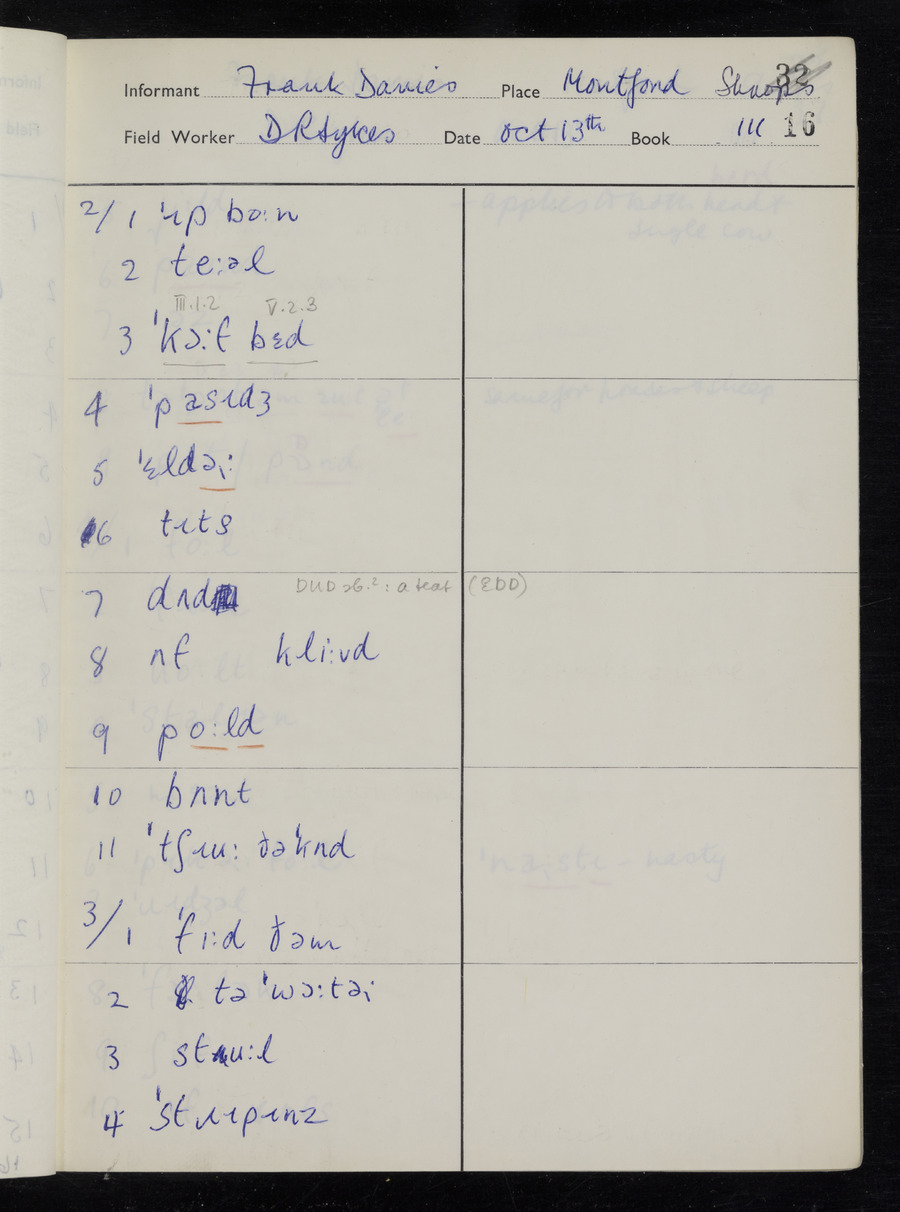 32
Informant Frank Davies Place Montford Shrops
Field Worker D R Sykes Date Oct 13th Book III 16
2/1 ˈɪp boːn
2 teːəl
III.1.2 V.2.3
3 ˈkɔːf bɛd
4 ˈpasɪdʒ
5 ˈɛldəɻː
6 tɪts
7 dʌd DUD sb.²: a teat (EDD)
8 nf kliːvd
9 poːld
10 bʌnt
11 ˈtʃɪuː ðəˈkʌd
3/1 ˈfiːd ðəm
2 tə ˈwɔːtəɻ
3 stuːl
4 ˈstrɪpɪnz